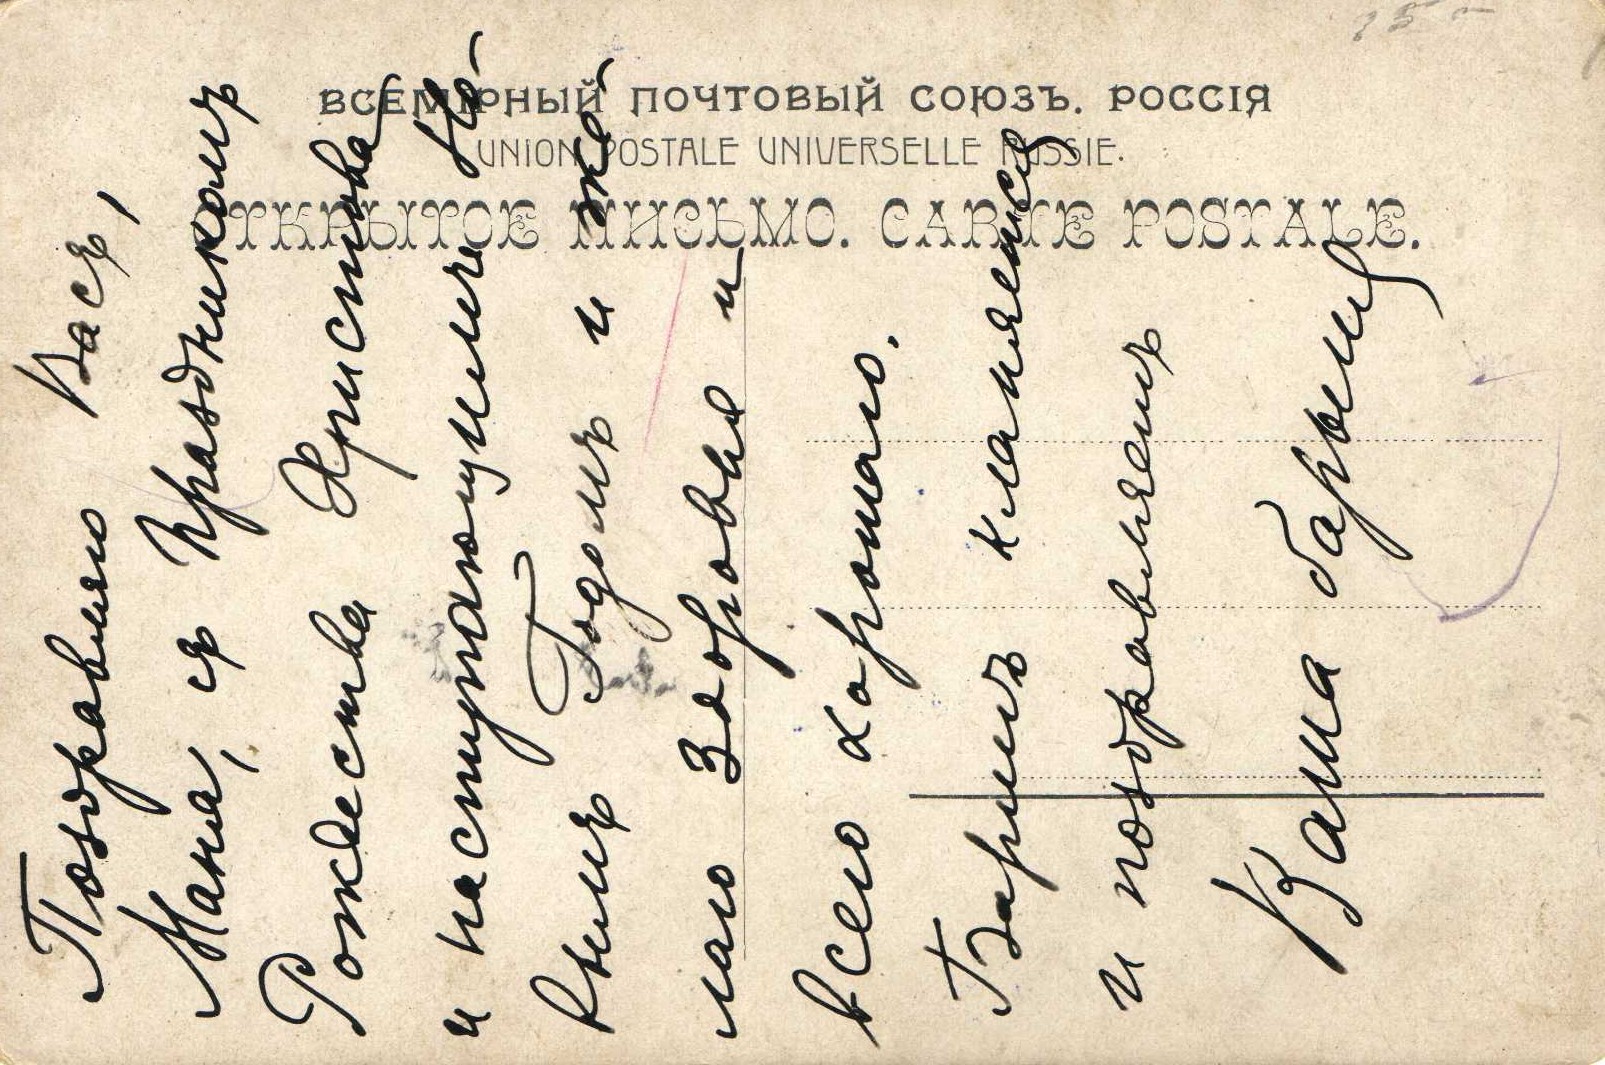 ВСЕМІРНЫЙ ПОЧТОВЫЙ СОЮЗЪ. РОССІЯ
UNION POSTALE UNIVERSELLE RUSSIE.
ОТКРЫТОЕ ПИСЬМО. CARTE POSTALE.
Поздравляю Васъ,
Маня, съ праздникомъ
Рождества Христова
и наступающимъ Но-
вымъ Годомъ и же-
лаю здоровья и
всего хорошаго.
Баринъ кланяется
и поздравляетъ
Ваша барыня